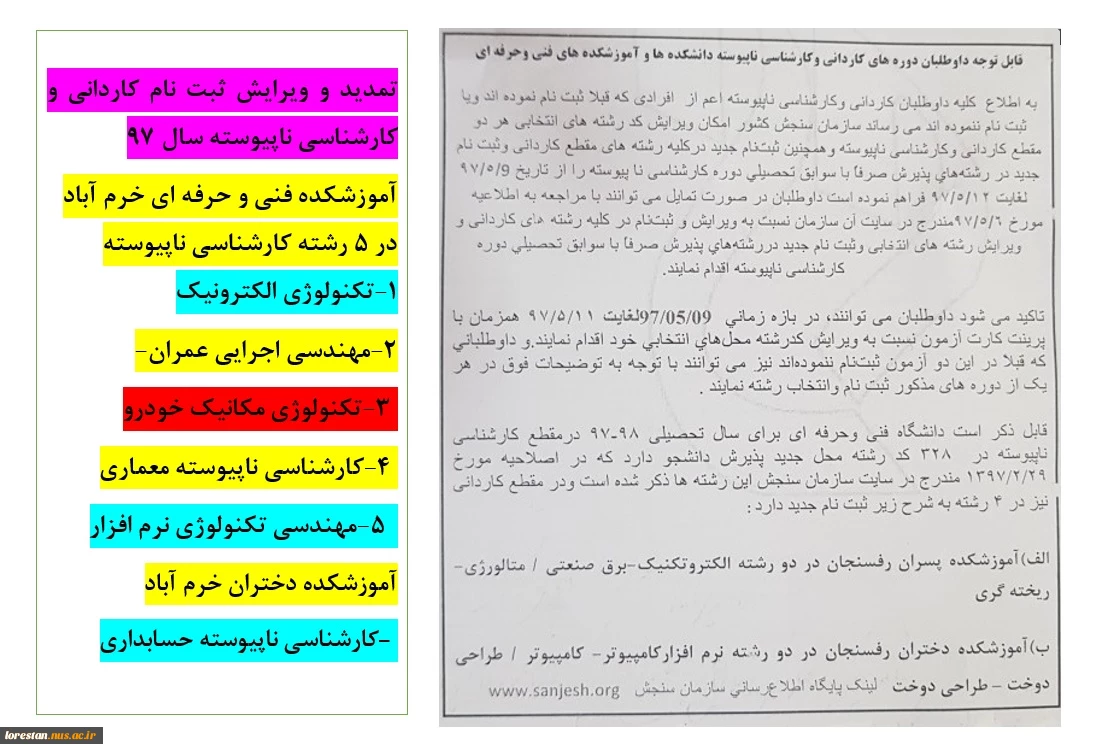 تمدید و ویرایش ثبت نام کاردانی و
کارشناسی ناپیوسته سال ۹۷
آموزشکده فنی و حرفه ای خرم آباد
در ۵ رشته کارشناسی ناپیوسته
۱-تکنولوژی الکترونیک
۲-مهندسی اجرایی عمران-
۳-تکنولوژی مکانیک خودرو
۴-کارشناسی ناپیوسته معماری
۵-مهندسی تکنولوژی نرم افزار
آموزشکده دختران خرم آباد
-کارشناسی ناپیوسته حسابداری
قابل توجه داوطلبان دوره های کاردانی وکارشناسی ناپیوسته دانشکده ها و آموزشکده های فنی وحرفه ای
به اطلاع کلیه داوطلبان کاردانی وکارشناسی ناپیوسته اعم از افرادی که قبلا ثبت نام نموده اند ویا
ثبت نام ننموده اند می رساند سازمان سنجش کشور امکان ویرایش کد رشته های انتخابی هر دو
مقطع کاردانی وکارشناسی ناپیوسته وهمچنین ثبت‌نام جدید درکلیه رشته های مقطع کاردانی وثبت نام
جدید در رشته‌هاي پذیرش صرفاً با سوابق تحصیلي دوره کارشناسی نا پیوسته را از تاریخ ۹۷/۵/9
لغایت ۹۷/۵/۱۲ فراهم نموده است داوطلبان در صورت تمایل می توانند با مراجعه به اطلاعیه
مورخ ۹۷/۵/۶مندرج در سایت آن سازمان نسبت به ویرایش و ثبت‌نام در کلیه رشته های کاردانی و
ویرایش رشته های انتخابی وثبت نام جدید دررشته‌هاي پذیرش صرفاً با سوابق تحصیلي دوره
کارشناسی ناپیوسته اقدام نمایند.
تاکید می شود داوطلبان می توانند، در بازه زماني 97/05/09لغایت ۹۷/۵/۱۱ همزمان با
پرینت کارت آزمون نسبت به ویرایش کدرشته محل‌هاي انتخابي خود اقدام نمایند.و داوطلباني
که قبلا در این دو آزمون ثبت‌نام ننموده‌اند نیز می توانند با توجه به توضیحات فوق در هر
یک از دوره های مذکور ثبت نام وانتخاب رشته نمایند .
قابل ذکر است دانشگاه فنی وحرفه ای برای سال تحصیلی ۹۸-۹۷ درمقطع کارشناسی
ناپیوسته در ۳۲۸ کد رشته محل جدید پذیرش دانشجو دارد که در اصلاحیه مورخ
۱۳۹۷/۲/۲۹ مندرج در سایت سازمان سنجش این رشته ها ذکر شده است ودر مقطع کاردانی
نیز در ۴ رشته به شرح زیر ثبت نام جدید دارد :
الف)آموزشکده پسران رفسنجان در دو رشته الکتروتکنیک-برق صنعتی / متالورژی-
ریخته گری
ب)آموزشکده دختران رفسنجان در دو رشته نرم افزارکامپیوتر- کامپیوتر / طراحی
دوخت – طراحی دوخت لینک پایگاه اطلاع‌رساني سازمان سنجش www.sanjesh.org
lorestan.nus.ac.ir